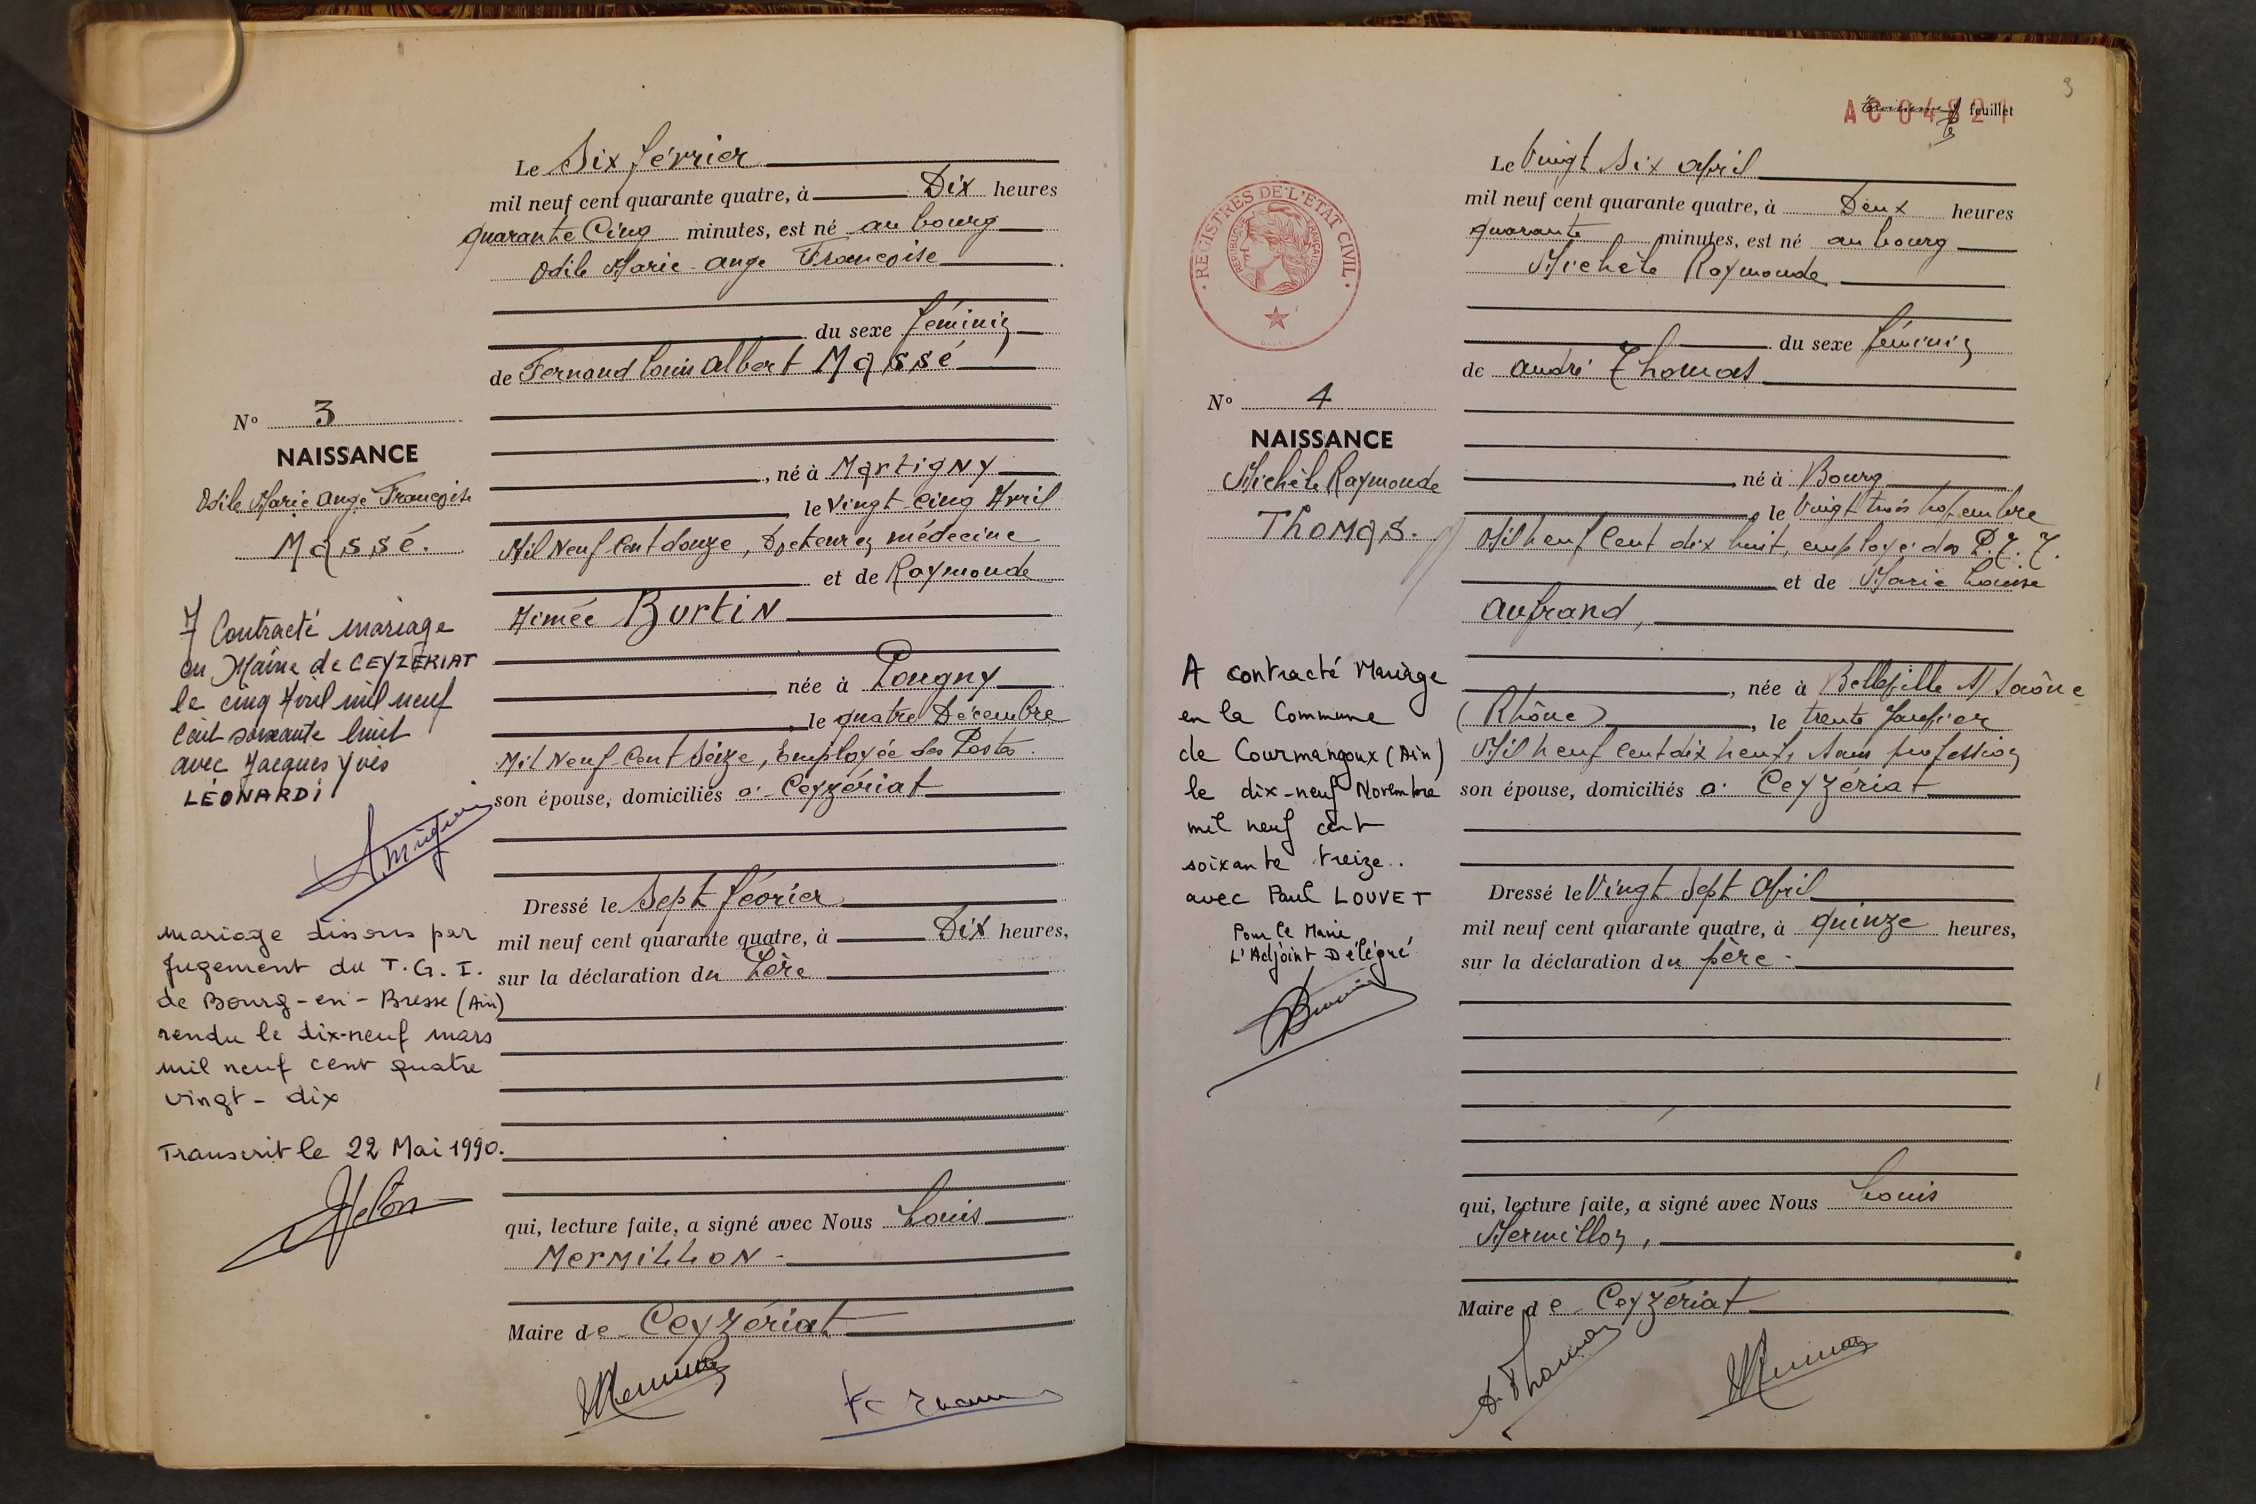 Le Six février
mil neuf cent quarante quatre, à Dix heures
quarante Cinq minutes, est né au bourg
Odile Marie-Ange Françoise
du sexe féminin
de Fernand Louis Albert Massé
N° 3
NAISSANCE
Odile Marie Ange Françoise
Massé.
, né à Martigny
, le Vingt-Cinq Avril
Mil Neuf Cent douze, Docteur en médecine
et de Raymonde
Aimée Burtin
née à Pougny
, le quatre Décembre
Mil Neuf Cent Seize, Employée des Postes.
son épouse, domiciliés à Ceyzériat
Contracté mariage
en Mairie de CEYZERIAT
le cinq Avril mil neuf
Cent soixante huit
avec Jacques Yves
LEONARDI
Dressé le Sept février
mil neuf cent quarante quatre, à Dix heures,
sur la déclaration du Père
mariage dissous par
jugement du T.G.I.
de Bourg-en-Bresse (Ain)
rendu le dix-neuf mars
mil neuf cent quatre
vingt-dix
Transcrit le 22 Mai 1990.
qui, lecture faite, a signé avec Nous Louis
Mermillon
Maire de Ceyzériat
3
AC04821
feuillet
Le Vingt Six Avril
mil neuf cent quarante quatre, à Deux heures
quarante minutes, est né au bourg
Michèle Raymonde
REGISTRES DE L'ETAT CIVIL
REPUBLIQUE FRANÇAISE
du sexe féminin
de André Thomas
N° 4
NAISSANCE
Michèle Raymonde
Thomas.
né à Bourg
, le Vingt trois Novembre
Mil neuf Cent dix huit, employé des P.T.T.
et de Marie Louise
Aufrand,
, née à Belleville s/ Saône
(Rhône), le trente Janvier
Mil neuf Cent dix neuf, sans profession
son épouse, domiciliés à Ceyzériat
A contracté Mariage
en la Commune
de Courmangoux (Ain)
le dix-neuf Novembre
mil neuf cent
soixante treize.
avec Paul LOUVET
Pour le Maire
L'Adjoint Délégué
Dressé le Vingt Sept Avril
mil neuf cent quarante quatre, à quinze heures,
sur la déclaration du père
qui, lecture faite, a signé avec Nous Louis
Mermillon,
Maire de Ceyzériat
A. Thomas